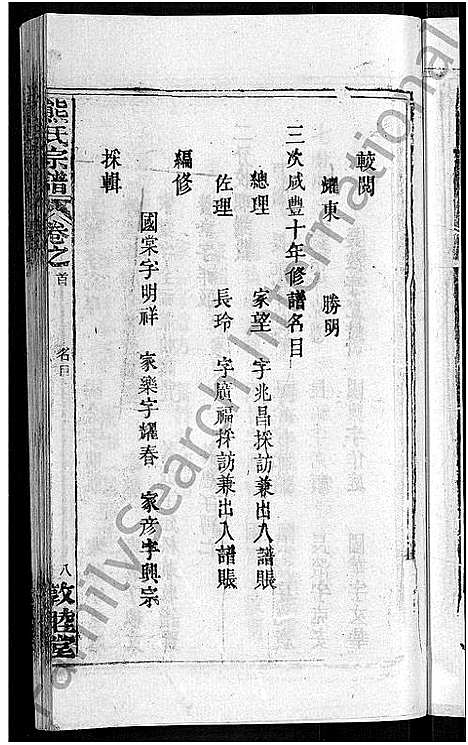 較閱
耀東　勝明
三次咸豐十年修譜名目
總理　家望　字兆昌採訪兼出入譜賬
佐理　長玲　字廣福採訪兼出入譜賬
編修
國棠字明祥　家樂字耀春　家彥字興宗
採輯
熊氏宗譜　卷之首　名目　八　敦睦堂
FamilySearch International